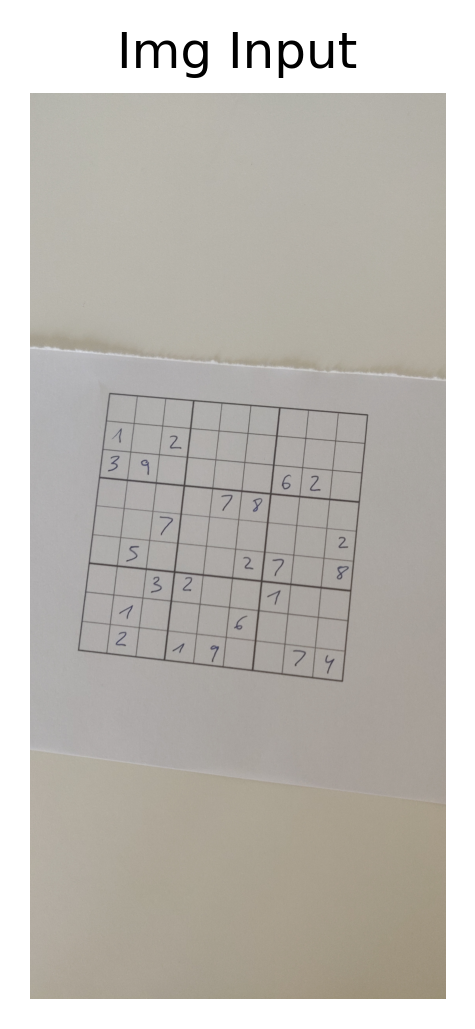 Img Input
1 2
3 9 6 2
7 8
7 2
5 2 7 8
3 2 1
1 6
2 1 9 7 4